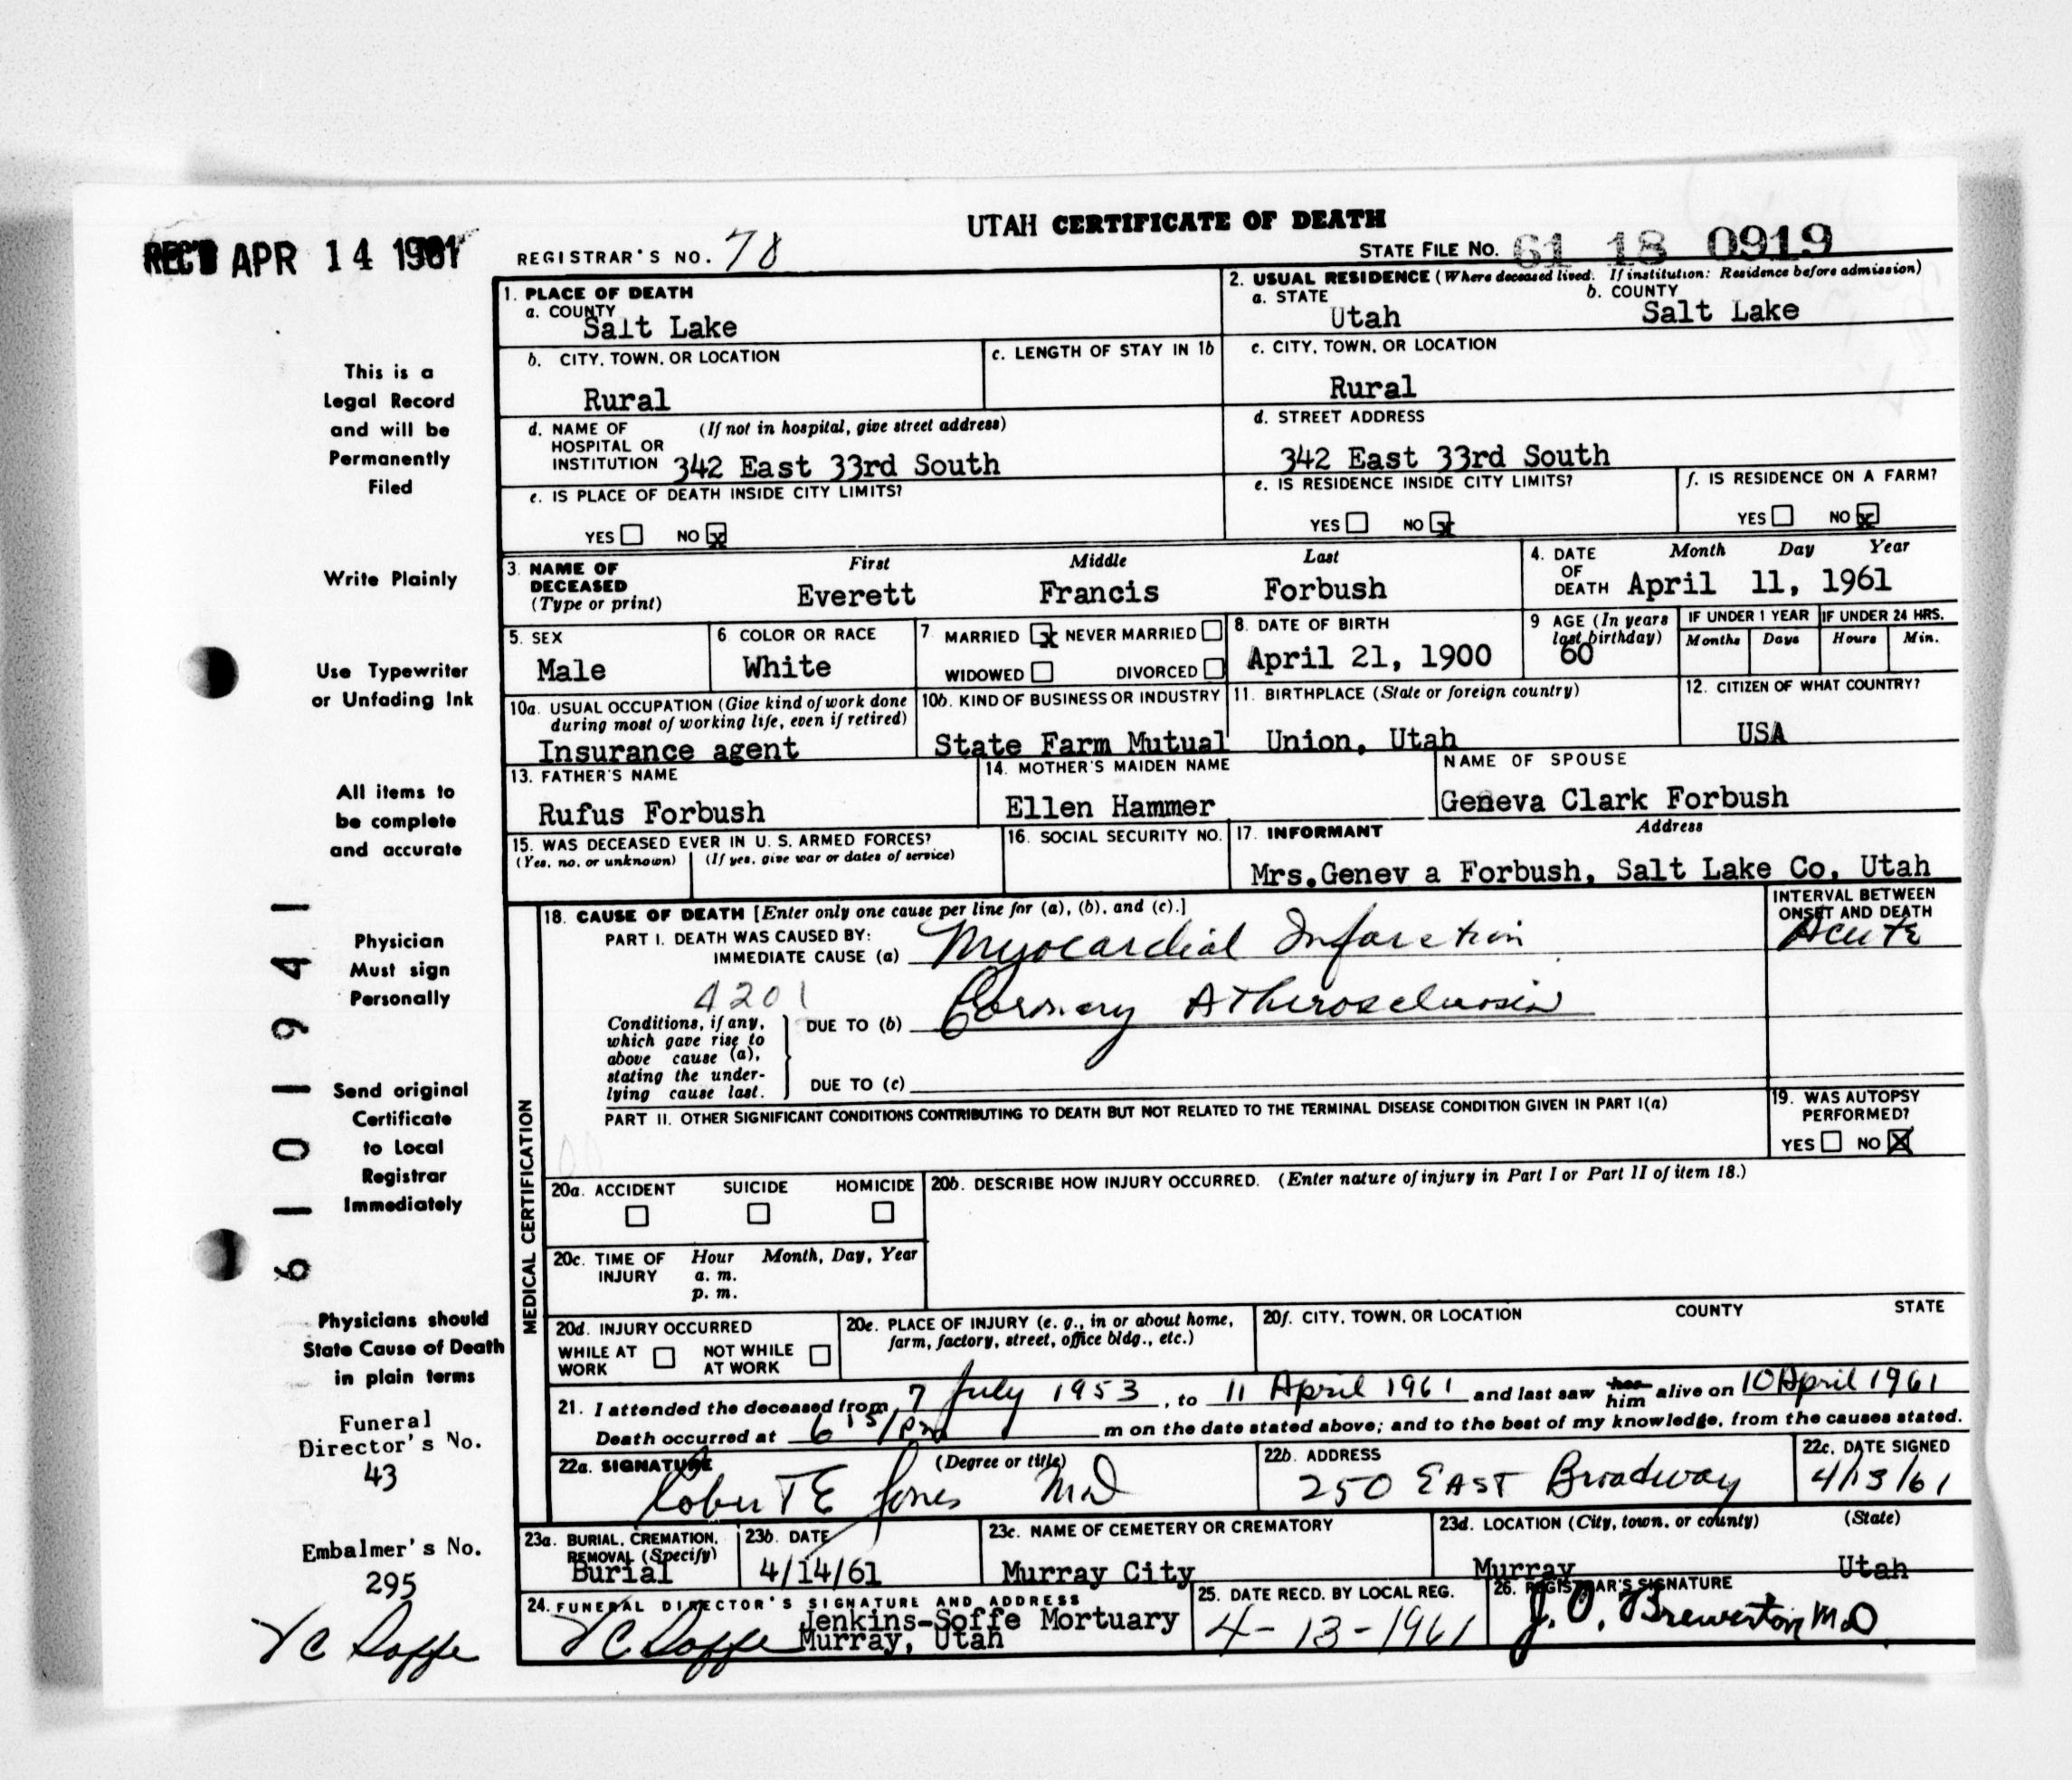 UTAH CERTIFICATE OF DEATH
REC'D APR 14 1961
REGISTRAR'S NO. 78
STATE FILE NO. 61 18 0919
1. PLACE OF DEATH
a. COUNTY
Salt Lake
2. USUAL RESIDENCE (Where deceased lived. If institution: Residence before admission)
a. STATE
Utah
b. COUNTY
Salt Lake
b. CITY, TOWN, OR LOCATION
Rural
c. LENGTH OF STAY IN 1b
c. CITY, TOWN, OR LOCATION
Rural
d. NAME OF (If not in hospital, give street address)
HOSPITAL OR
INSTITUTION 342 East 33rd South
d. STREET ADDRESS
342 East 33rd South
e. IS PLACE OF DEATH INSIDE CITY LIMITS?
YES NO x
e. IS RESIDENCE INSIDE CITY LIMITS?
YES NO x
f. IS RESIDENCE ON A FARM?
YES NO x
3. NAME OF
DECEASED
(Type or print)
First Middle Last
Everett Francis Forbush
4. DATE
OF
DEATH
Month Day Year
April 11, 1961
5. SEX
Male
6. COLOR OR RACE
White
7. MARRIED x NEVER MARRIED
WIDOWED DIVORCED
8. DATE OF BIRTH
April 21, 1900
9 AGE (In years
last birthday)
60
IF UNDER 1 YEAR
Months Days
IF UNDER 24 HRS.
Hours Min.
10a. USUAL OCCUPATION (Give kind of work done
during most of working life, even if retired)
Insurance agent
10b. KIND OF BUSINESS OR INDUSTRY
State Farm Mutual
11. BIRTHPLACE (State or foreign country)
Union, Utah
12. CITIZEN OF WHAT COUNTRY?
USA
13. FATHER'S NAME
Rufus Forbush
14. MOTHER'S MAIDEN NAME
Ellen Hammer
NAME OF SPOUSE
Geneva Clark Forbush
15. WAS DECEASED EVER IN U. S. ARMED FORCES?
(Yes, no, or unknown) (If yes, give war or dates of service)
16. SOCIAL SECURITY NO.
17. INFORMANT Address
Mrs.Genev a Forbush, Salt Lake Co, Utah
MEDICAL CERTIFICATION
18. CAUSE OF DEATH [Enter only one cause per line for (a), (b), and (c).]
PART I. DEATH WAS CAUSED BY:
IMMEDIATE CAUSE (a) Myocardial Infarction
INTERVAL BETWEEN
ONSET AND DEATH
Acute
4201
Conditions, if any,
which gave rise to
above cause (a),
stating the under-
lying cause last.
DUE TO (b) Coronary Atherosclerosis
DUE TO (c)
PART II. OTHER SIGNIFICANT CONDITIONS CONTRIBUTING TO DEATH BUT NOT RELATED TO THE TERMINAL DISEASE CONDITION GIVEN IN PART I(a)
19. WAS AUTOPSY
PERFORMED?
YES NO X
20a. ACCIDENT SUICIDE HOMICIDE
20b. DESCRIBE HOW INJURY OCCURRED. (Enter nature of injury in Part I or Part II of item 18.)
20c. TIME OF Hour Month, Day, Year
INJURY a. m.
p. m.
20d. INJURY OCCURRED
WHILE AT WORK
NOT WHILE AT WORK
20e. PLACE OF INJURY (e. g., in or about home,
farm, factory, street, office bldg., etc.)
20f. CITY, TOWN, OR LOCATION COUNTY STATE
21. I attended the deceased from 7 July 1953, to 11 April 1961 and last saw her him alive on 10 April 1961
Death occurred at 6 15/Pm m on the date stated above; and to the best of my knowledge, from the causes stated.
22a. SIGNATURE (Degree or title)
Robert E Jones MD
22b. ADDRESS
250 EAST Broadway
22c. DATE SIGNED
4/13/61
23a. BURIAL, CREMATION,
REMOVAL (Specify)
Burial
23b. DATE
4/14/61
23c. NAME OF CEMETERY OR CREMATORY
Murray City
23d. LOCATION (City, town, or county) (State)
Murray Utah
24. FUNERAL DIRECTOR'S SIGNATURE AND ADDRESS
Jenkins-Soffe Mortuary
V C Soffe Murray, Utah
25. DATE RECD. BY LOCAL REG.
4-13-1961
26. REGISTRAR'S SIGNATURE
J. O. Brewerton MD
This is a
Legal Record
and will be
Permanently
Filed
Write Plainly
Use Typewriter
or Unfading Ink
All items to
be complete
and accurate
Physician
Must sign
Personally
Send original
Certificate
to Local
Registrar
Immediately
Physicians should
State Cause of Death
in plain terms
Funeral
Director's No.
43
Embalmer's No.
295
V C Soffe
6101941